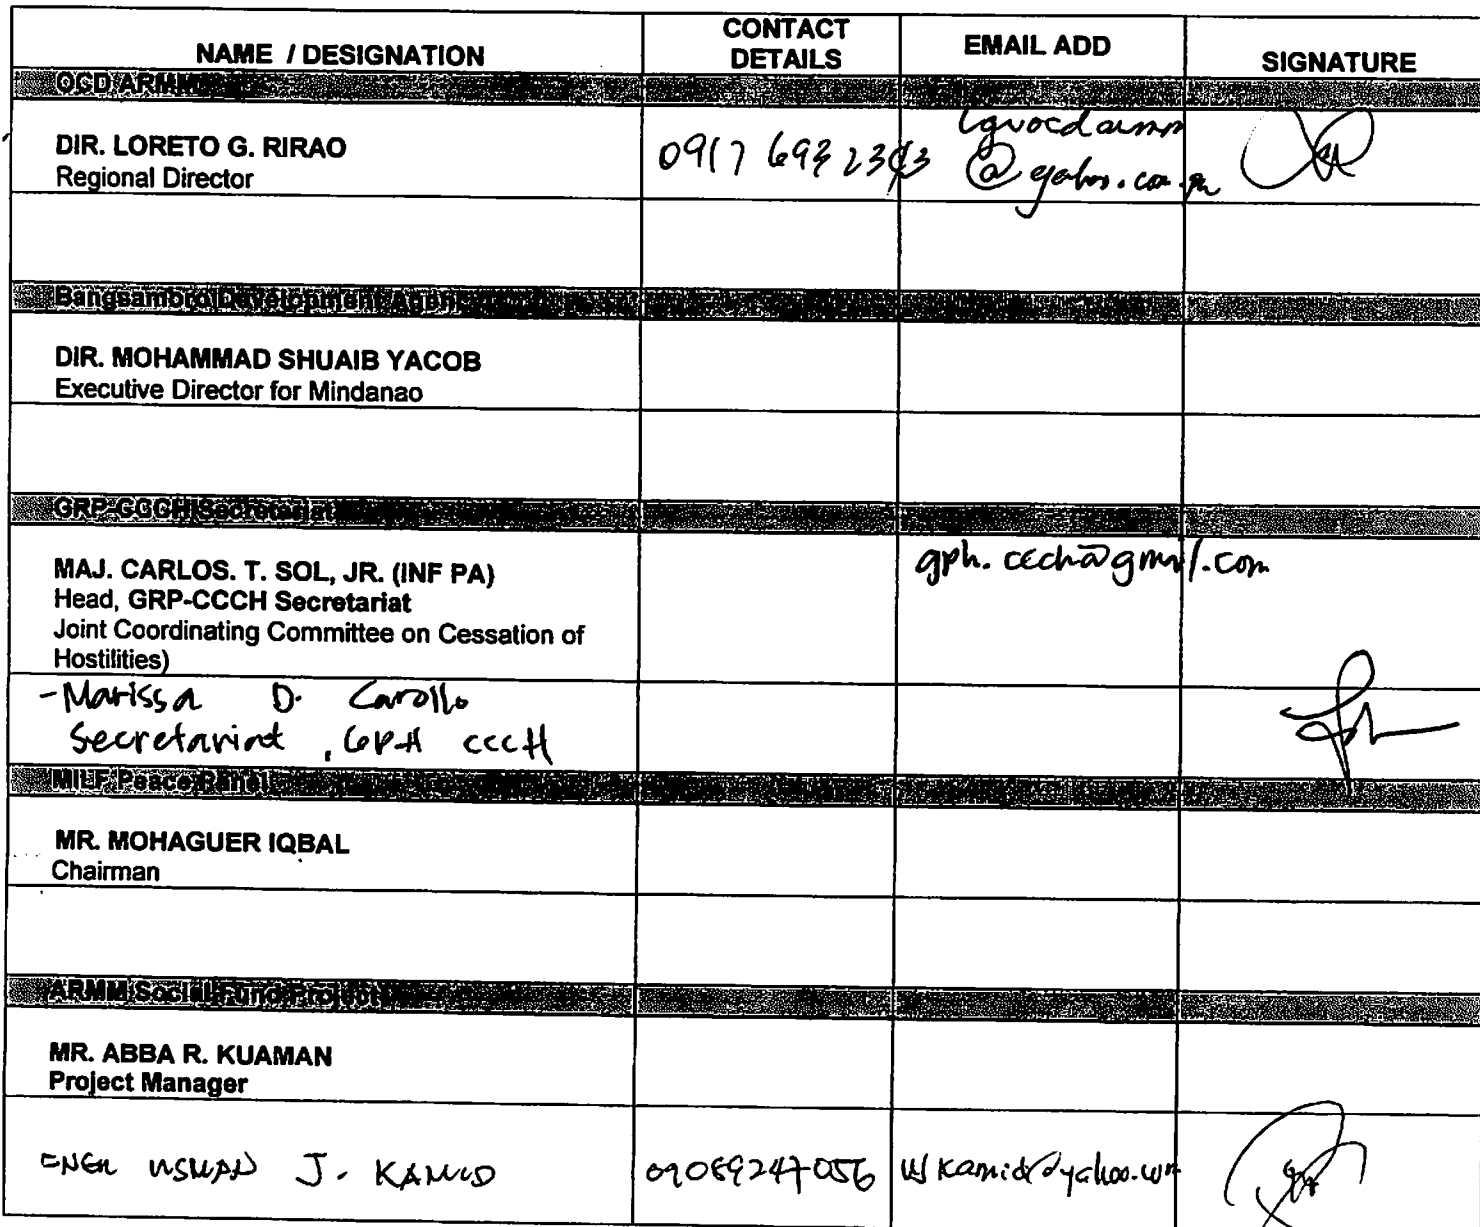 NAME / DESIGNATION
CONTACT
DETAILS
EMAIL ADD
SIGNATURE
OCD ARMM
DIR. LORETO G. RIRAO
Regional Director
0917 693 2343
@yahoo.com.ph
Bangsamoro Development Agency
DIR. MOHAMMAD SHUAIB YACOB
Executive Director for Mindanao
GRP-CCCH Secretariat
MAJ. CARLOS. T. SOL, JR. (INF PA)
Head, GRP-CCCH Secretariat
Joint Coordinating Committee on Cessation of
Hostilities)
gph.ccch@gmail.com
-Marissa D. Carollo
Secretariat, GPH CCCH
MILF Peace Panel
MR. MOHAGUER IQBAL
Chairman
ARMM Social Fund Project
MR. ABBA R. KUAMAN
Project Manager
ENGR USMAN J. KAMID
09089247056